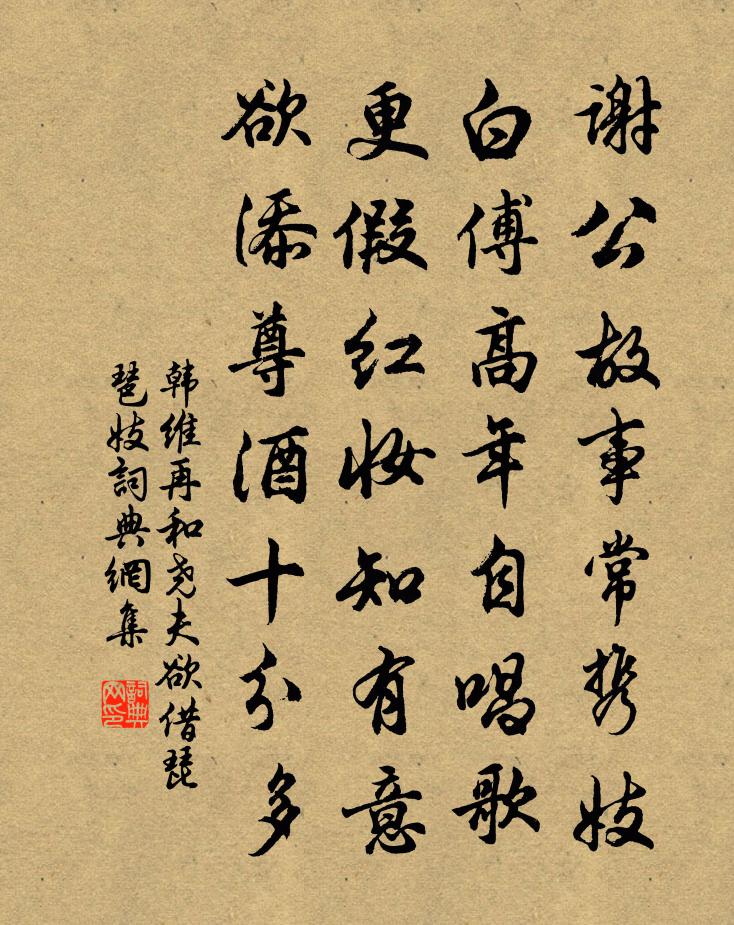 谢公故事常携妓
白傅高年自唱歌
更假红妆知有意
欲添尊酒十分多
韩维再和尧夫欲借琵
琶妓詞典網集
詞典
网印